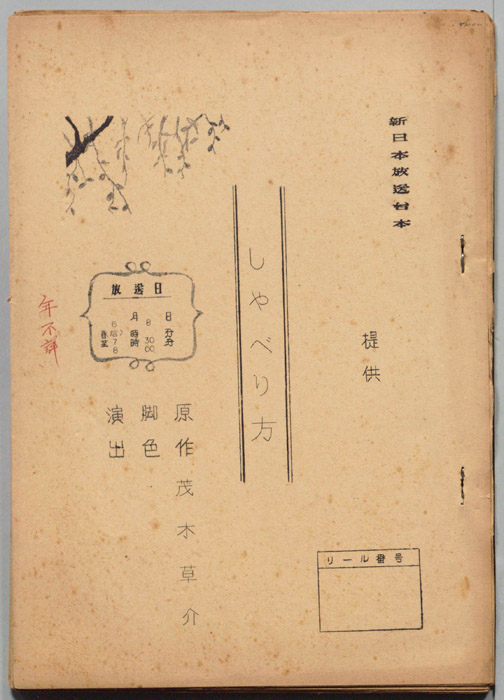 新日本放送台本
提供
しゃべり方
原作 茂木草介
脚色
演出
放送日
月 日
リール番号
年不詳